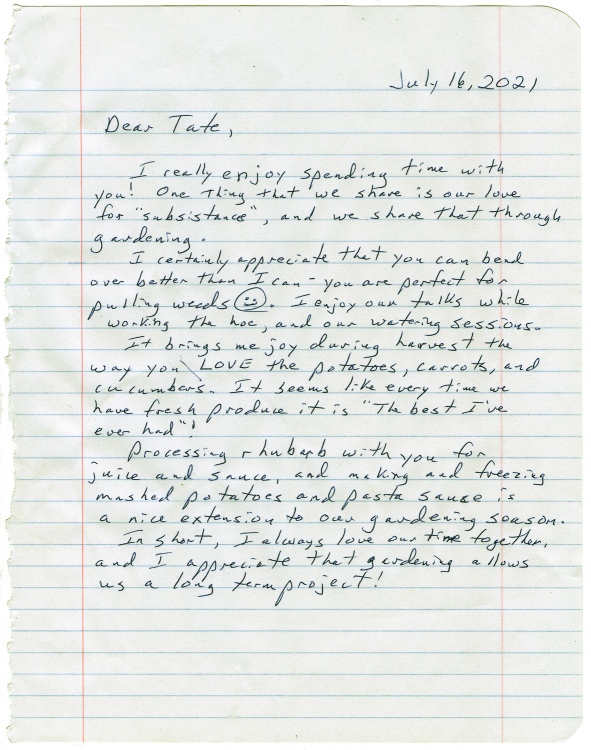 July 16, 2021
Dear Tate,
I really enjoy spending time with
you! One thing that we share is our love
for "subsistance", and we share that through
gardening.
I certainly appreciate that you can bend
over better than I can - you are perfect for
pulling weeds. I enjoy our talks while
working the hoe, and our watering sessions.
It brings me joy during harvest the
way you LOVE the potatoes, carrots, and
cucumbers. It seems like every time we
have fresh produce it is "The best I've
ever had"!
Processing rhubarb with you for
juice and sauce, and making and freezing
mashed potatoes and pasta sauce is
a nice extension to our gardening season.
In short, I always love our time together,
and I appreciate that gardening allows
us a long term project!